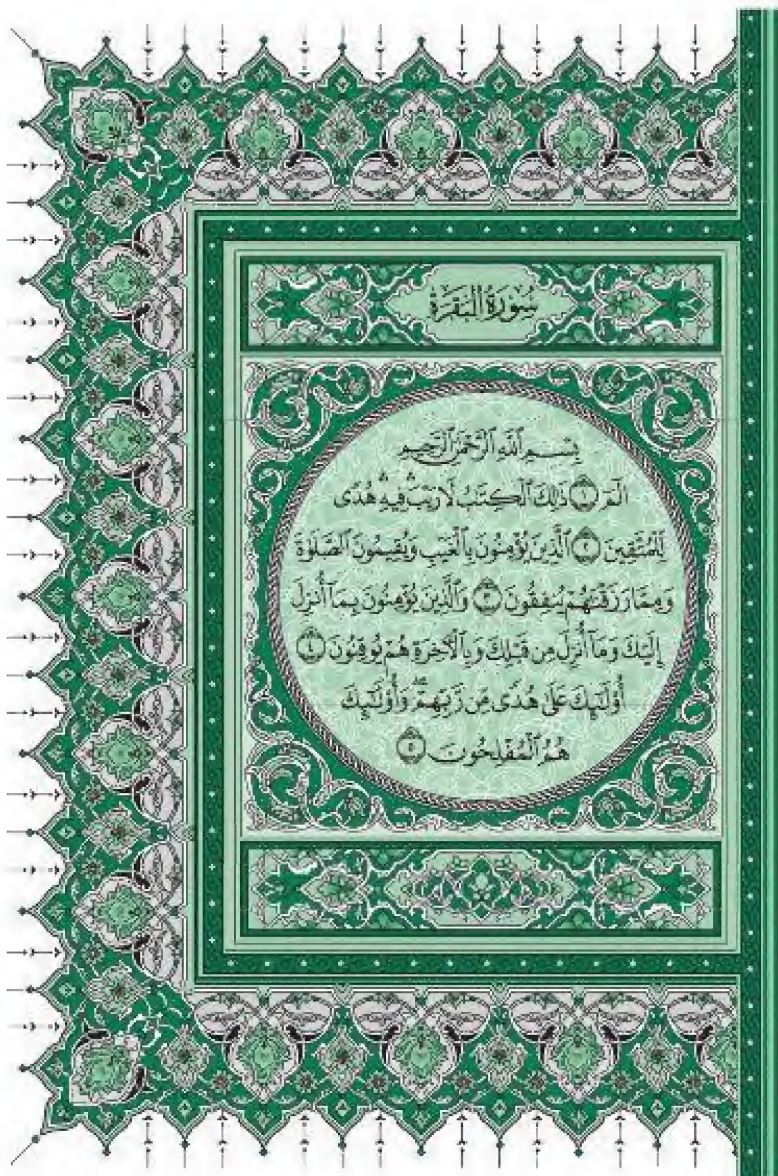 سُورَةُ الْبَقَرَةِ
بِسْمِ ٱللَّهِ ٱلرَّحْمَٰنِ ٱلرَّحِيمِ
الٓمٓ ۝١ ذَٰلِكَ ٱلْكِتَٰبُ لَا رَيْبَۛ فِيهِۛ هُدًى
لِّلْمُتَّقِينَ ۝٢ ٱلَّذِينَ يُؤْمِنُونَ بِٱلْغَيْبِ وَيُقِيمُونَ ٱلصَّلَوٰةَ
وَمِمَّا رَزَقْنَٰهُمْ يُنفِقُونَ ۝٣ وَٱلَّذِينَ يُؤْمِنُونَ بِمَآ أُنزِلَ
إِلَيْكَ وَمَآ أُنزِلَ مِن قَبْلِكَ وَبِٱلْءَاخِرَةِ هُمْ يُوقِنُونَ ۝٤
أُو۟لَٰٓئِكَ عَلَىٰ هُدًى مِّن رَّبِّهِمْۖ وَأُو۟لَٰٓئِكَ
هُمُ ٱلْمُفْلِحُونَ ۝٥